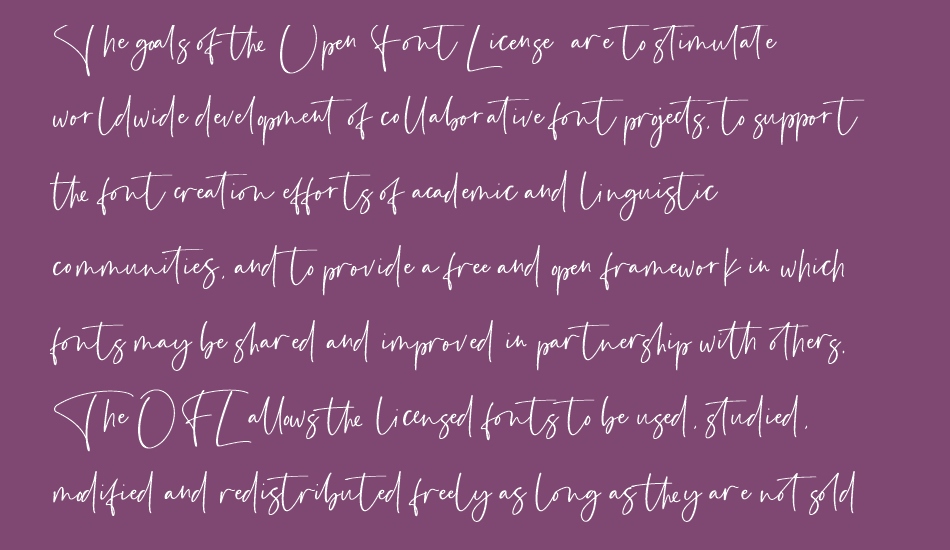 The goals of the Open Font License are to stimulate
worldwide development of collaborative font projects, to support
the font creation efforts of academic and linguistic
communities, and to provide a free and open framework in which
fonts may be shared and improved in partnership with others.
The OFL allows the licensed fonts to be used, studied,
modified and redistributed freely as long as they are not sold